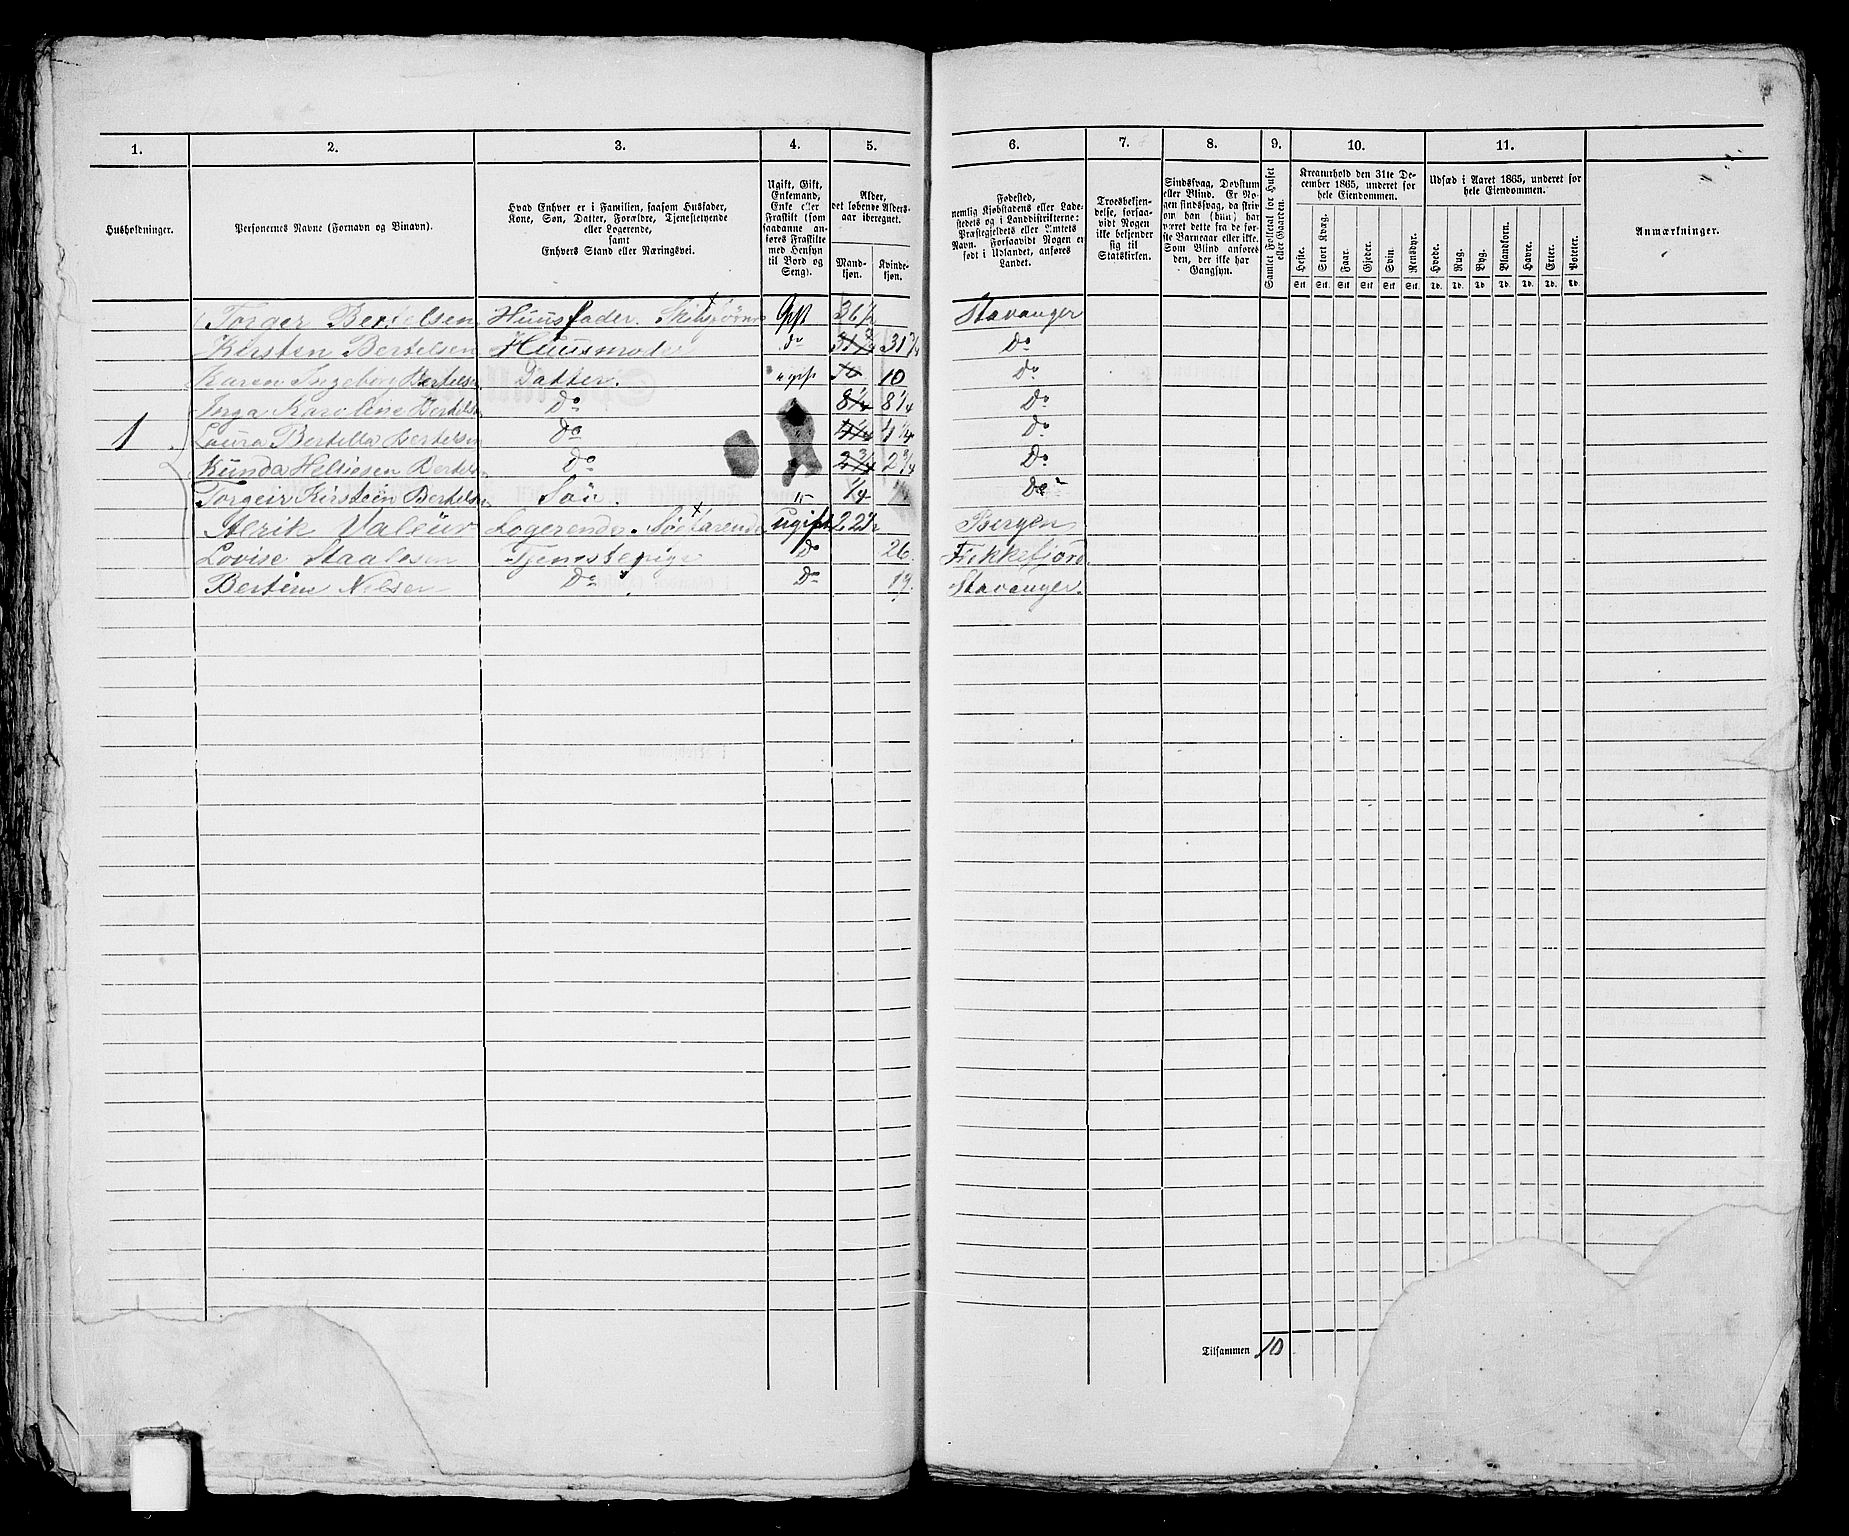 1. 2. 3. 4. 5. 6. 7. 8. 9. 10. 11.
Husholdninger.
Personernes Navne (Fornavn og Binavn).
Hvad Enhver er i Familien, saasom Husfader,
Kone, Søn, Datter, Forældre, Tjenestetyende
eller Logerende,
samt
Enhvers Stand eller Næringsvei.
Ugift, Gift,
Enkemand,
Enke eller
Fraskilt (som
saadanne an-
føres Fraskilte
med Hensyn
til Bord og
Seng).
Alder,
det løbende Alders-
aar iberegnet.
Mand-
kjøn.
Kvinde-
kjøn.
Fødested,
nemlig Kjøbstadens eller Lade-
stedets og i Landdistrikterne:
Præstegjeldets eller Amtets
Navn. Forsaavidt Nogen er
født i Udlandet, anføres
Landet.
Troesbekjen-
delse, forsaa-
vidt Nogen
ikke bekjender
sig til
Statskirken.
Sindssvag, Døvstum
eller Blind. Er No-
gen sindssvag, da skriv
om han (hun) har
været dette fra de før-
ste Barneaar eller ikke.
Som Blind anføres
den, der ikke har
Gangsyn.
Samlet Folketal for Huset
eller Gaarden.
Kreaturhold den 31te De-
cember 1865, underet for
hele Eiendommen.
Heste. Stort Kvæg. Faar. Gjeder. Svin. Rensdyr.
Stk Stk Stk Stk Stk Stk.
Udsæd i Aaret 1865, underet for
hele Eiendommen.
Hvede. Rug. Byg. Blandkorn. Havre. Erter. Poteter.
Td. Td. Td. Td. Td. Td. Td.
Anmærkninger.
Torger Bertelsen Huusfader. Gift 36½ Stavanger
Kirsten Bertelsen Huusmoder do 31¾ Do
Karen Ingeborg Bertelsen Datter. ugift 10 10 Do
Inga Karoline Bertels Do 8¼ 8¼ Do
1 Laura Bertella Bertelsen Do 4¼ 4¼ Do
Kunda Bertels Do 2¾ 2¾ Do
Torgeir Kirstein Bertels Søn. " ¼ Do
Logerende. Søefarende ugift 22½ Bergen
Lovise Staalesen Tjenestepige Do 26. Flekkefjord
Bertine Nilsen Do Do 19. Stavanger.
Tilsammen 10